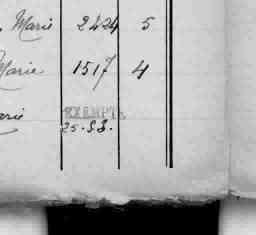 Marie 2424 5
Marie 1517 4
arie EXEMPT.
25.S.B.